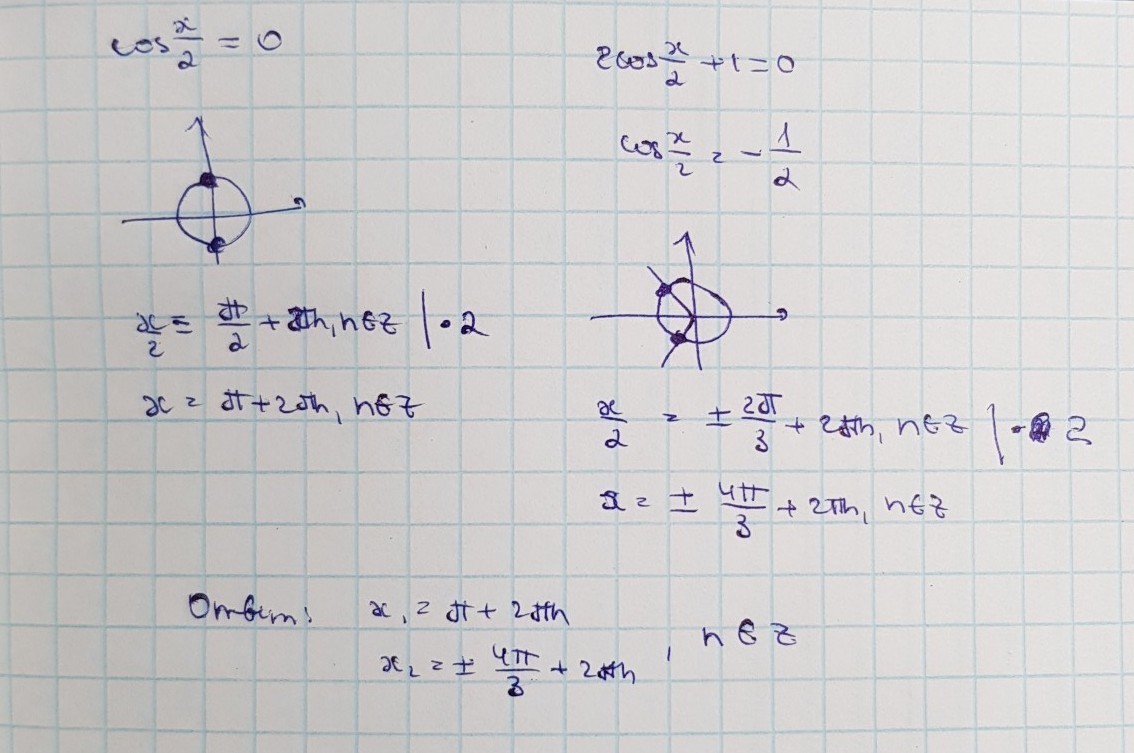 cos x/2 = 0
x/2 = π/2 + πn, n∈Z | · 2
x = π + 2πn, n∈Z
2cos x/2 + 1 = 0
cos x/2 = - 1/2
x/2 = ± 2π/3 + 2πn, n∈Z | · 2
x = ± 4π/3 + 2πn, n∈Z
Ответ: x₁ = π + 2πn
x₂ = ± 4π/3 + 2πn , n∈Z